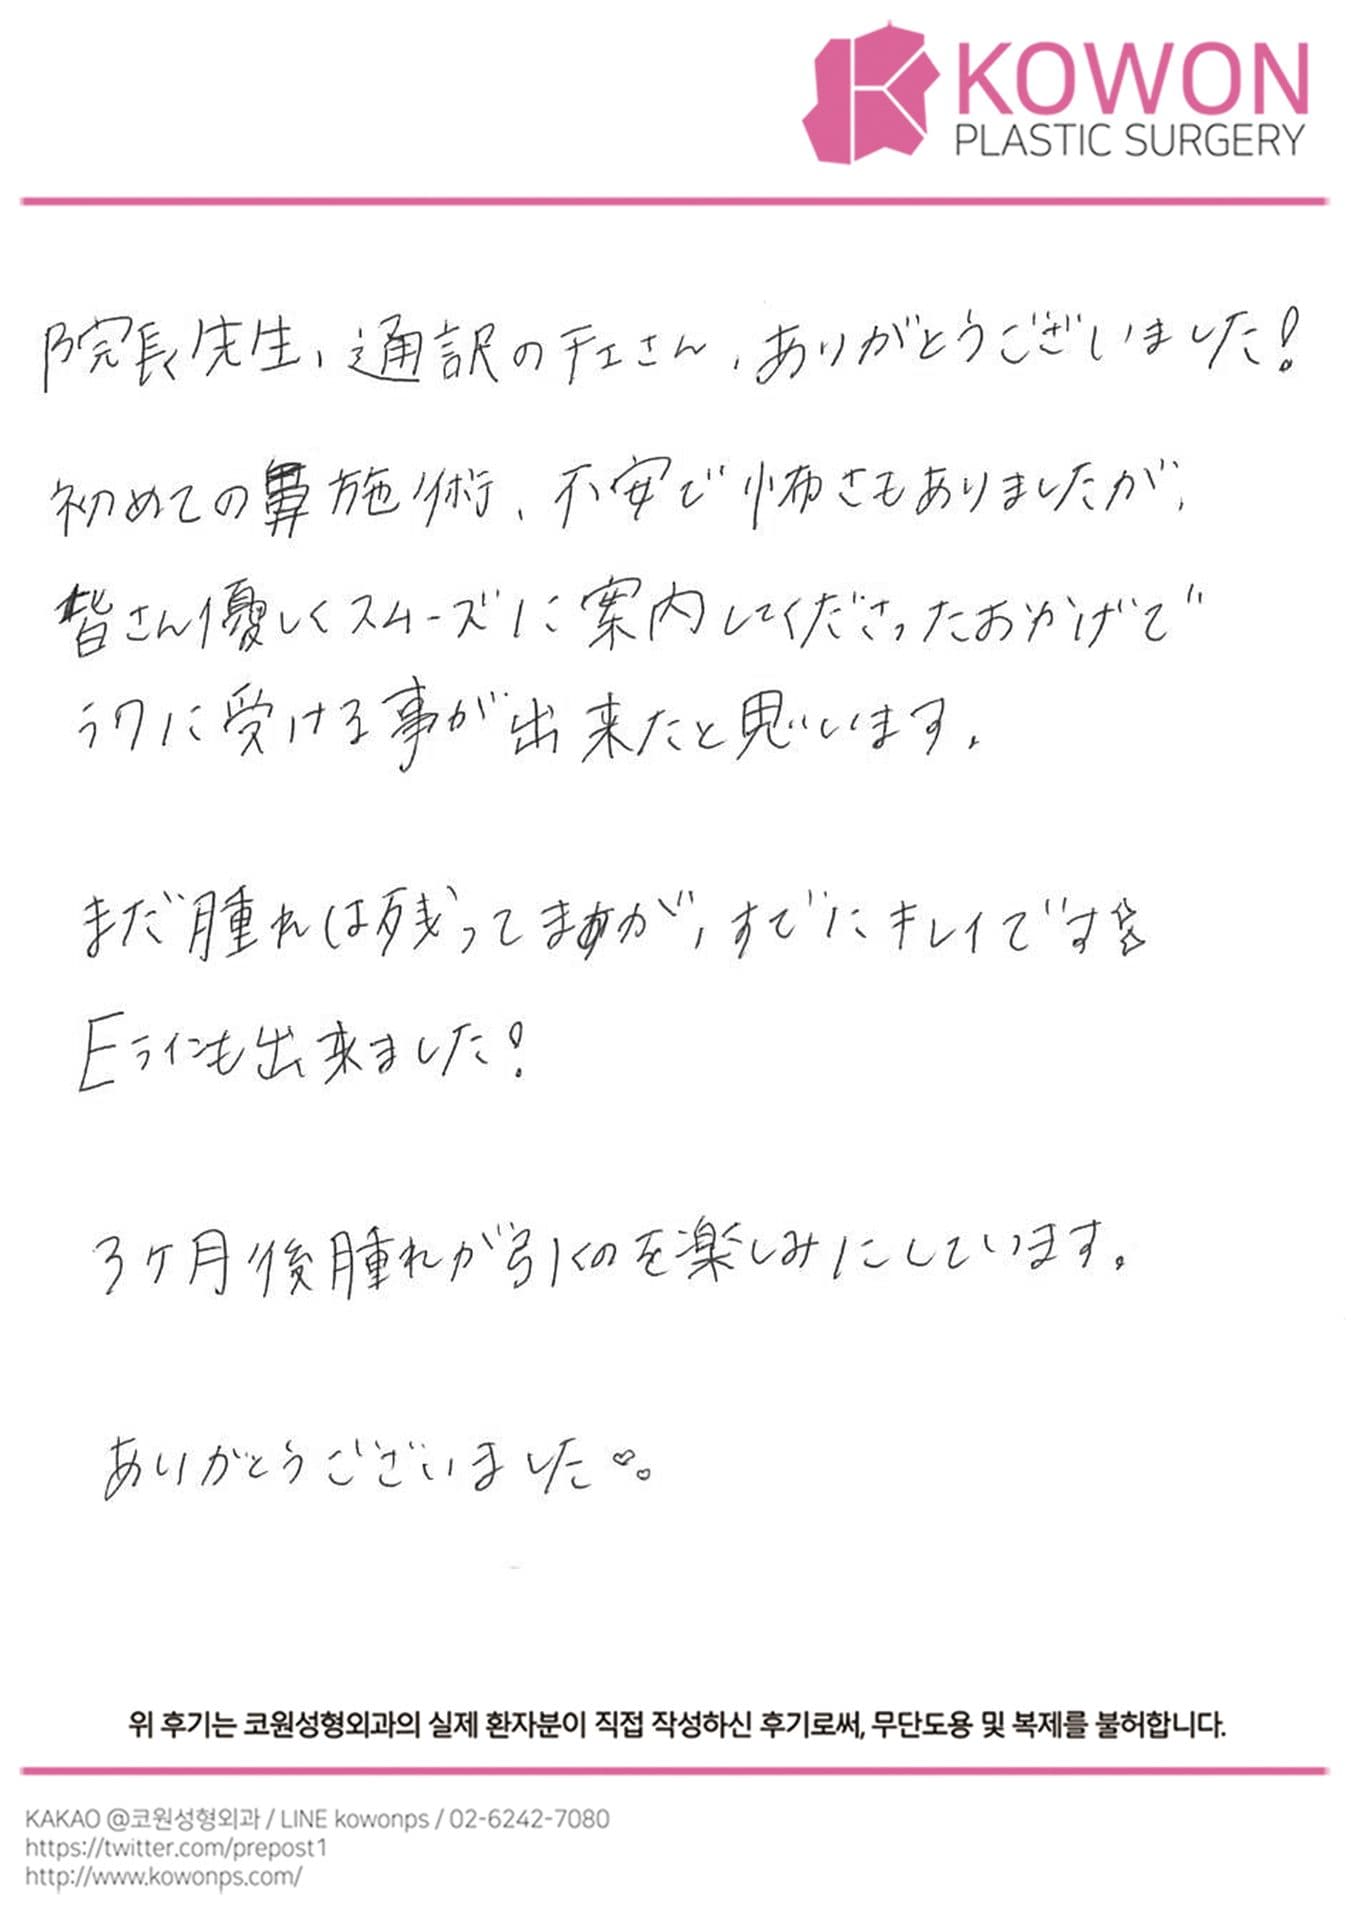 KOWON
PLASTIC SURGERY
院長先生、通訳のチェさん、ありがとうございました!
初めての鼻施術、不安で怖さもありましたが、
皆さん優しくスムーズに案内してくださったおかげで
ラクに受ける事が出来たと思います。
まだ腫れは残ってますが、すでにキレイです☆
Eラインも出来ました!
3ケ月後腫れが引くのを楽しみにしています。
ありがとうございました♡。
위 후기는 코원성형외과의 실제 환자분이 직접 작성하신 후기로써, 무단도용 및 복제를 불허합니다.
KAKAO @코원성형외과 / LINE kowonps / 02-6242-7080
https://twitter.com/prepost1
http://www.kowonps.com/